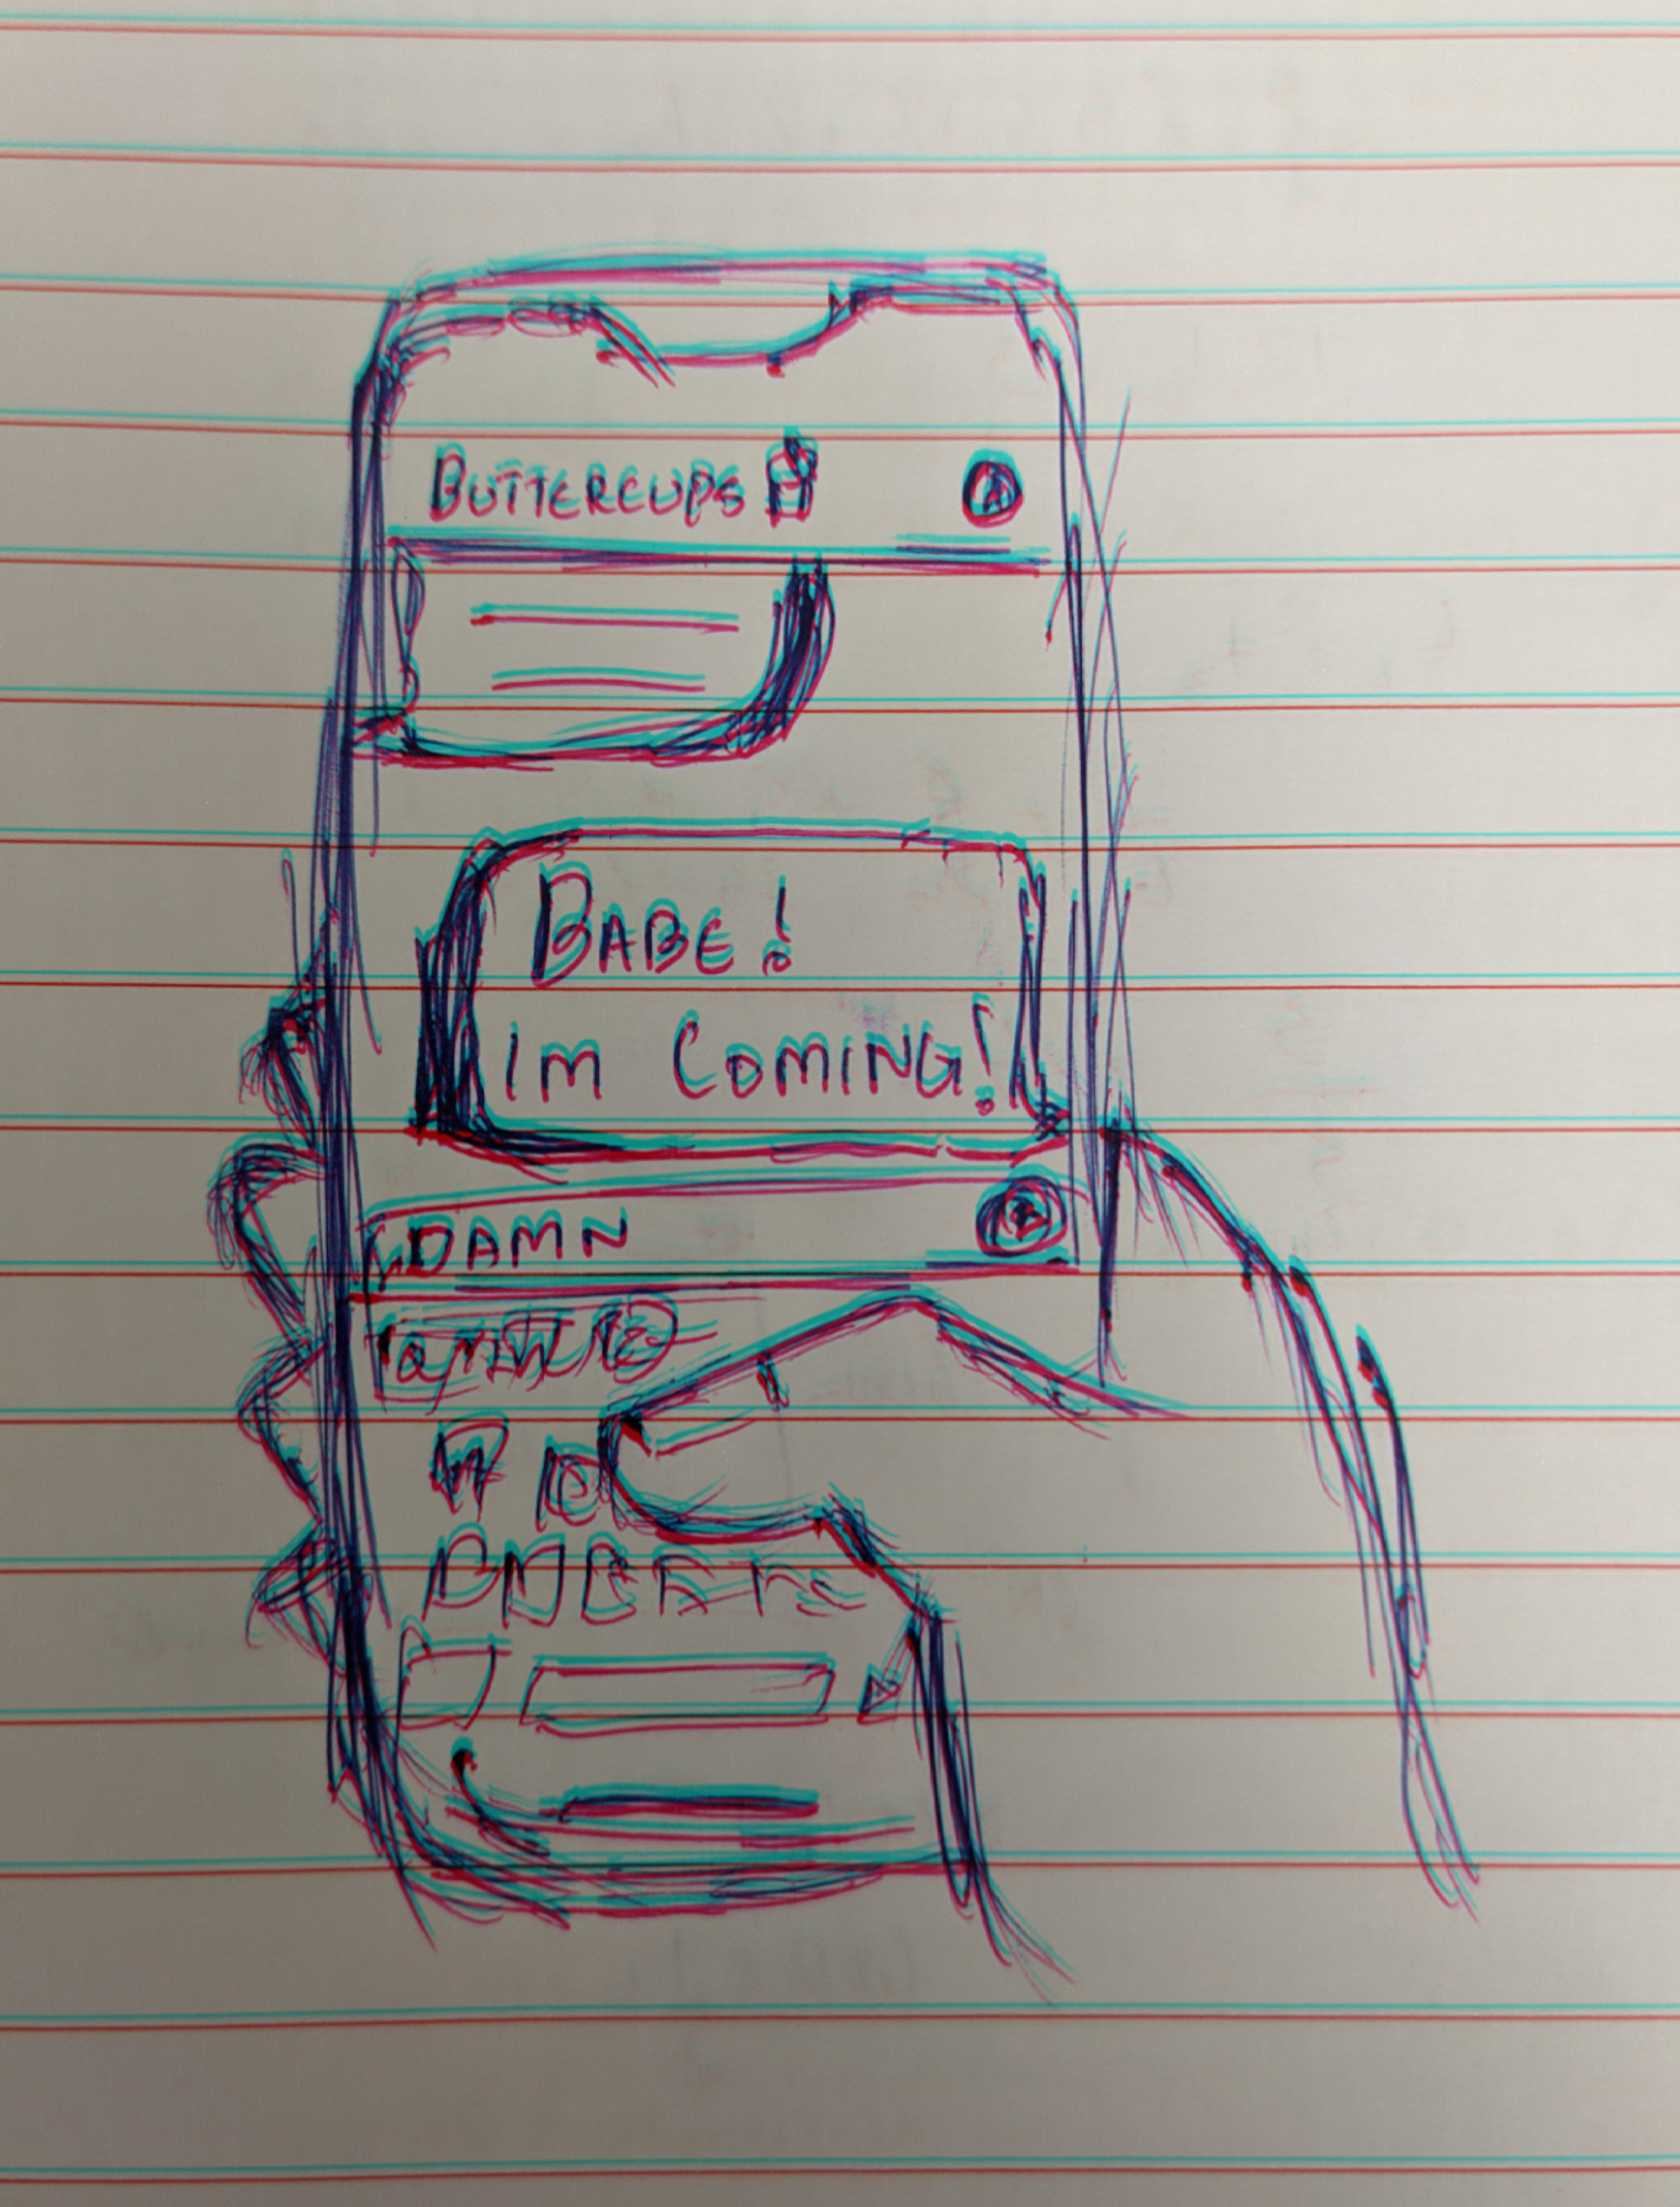 BUTTERCUPS
BABE!
IM COMING!
DAMN